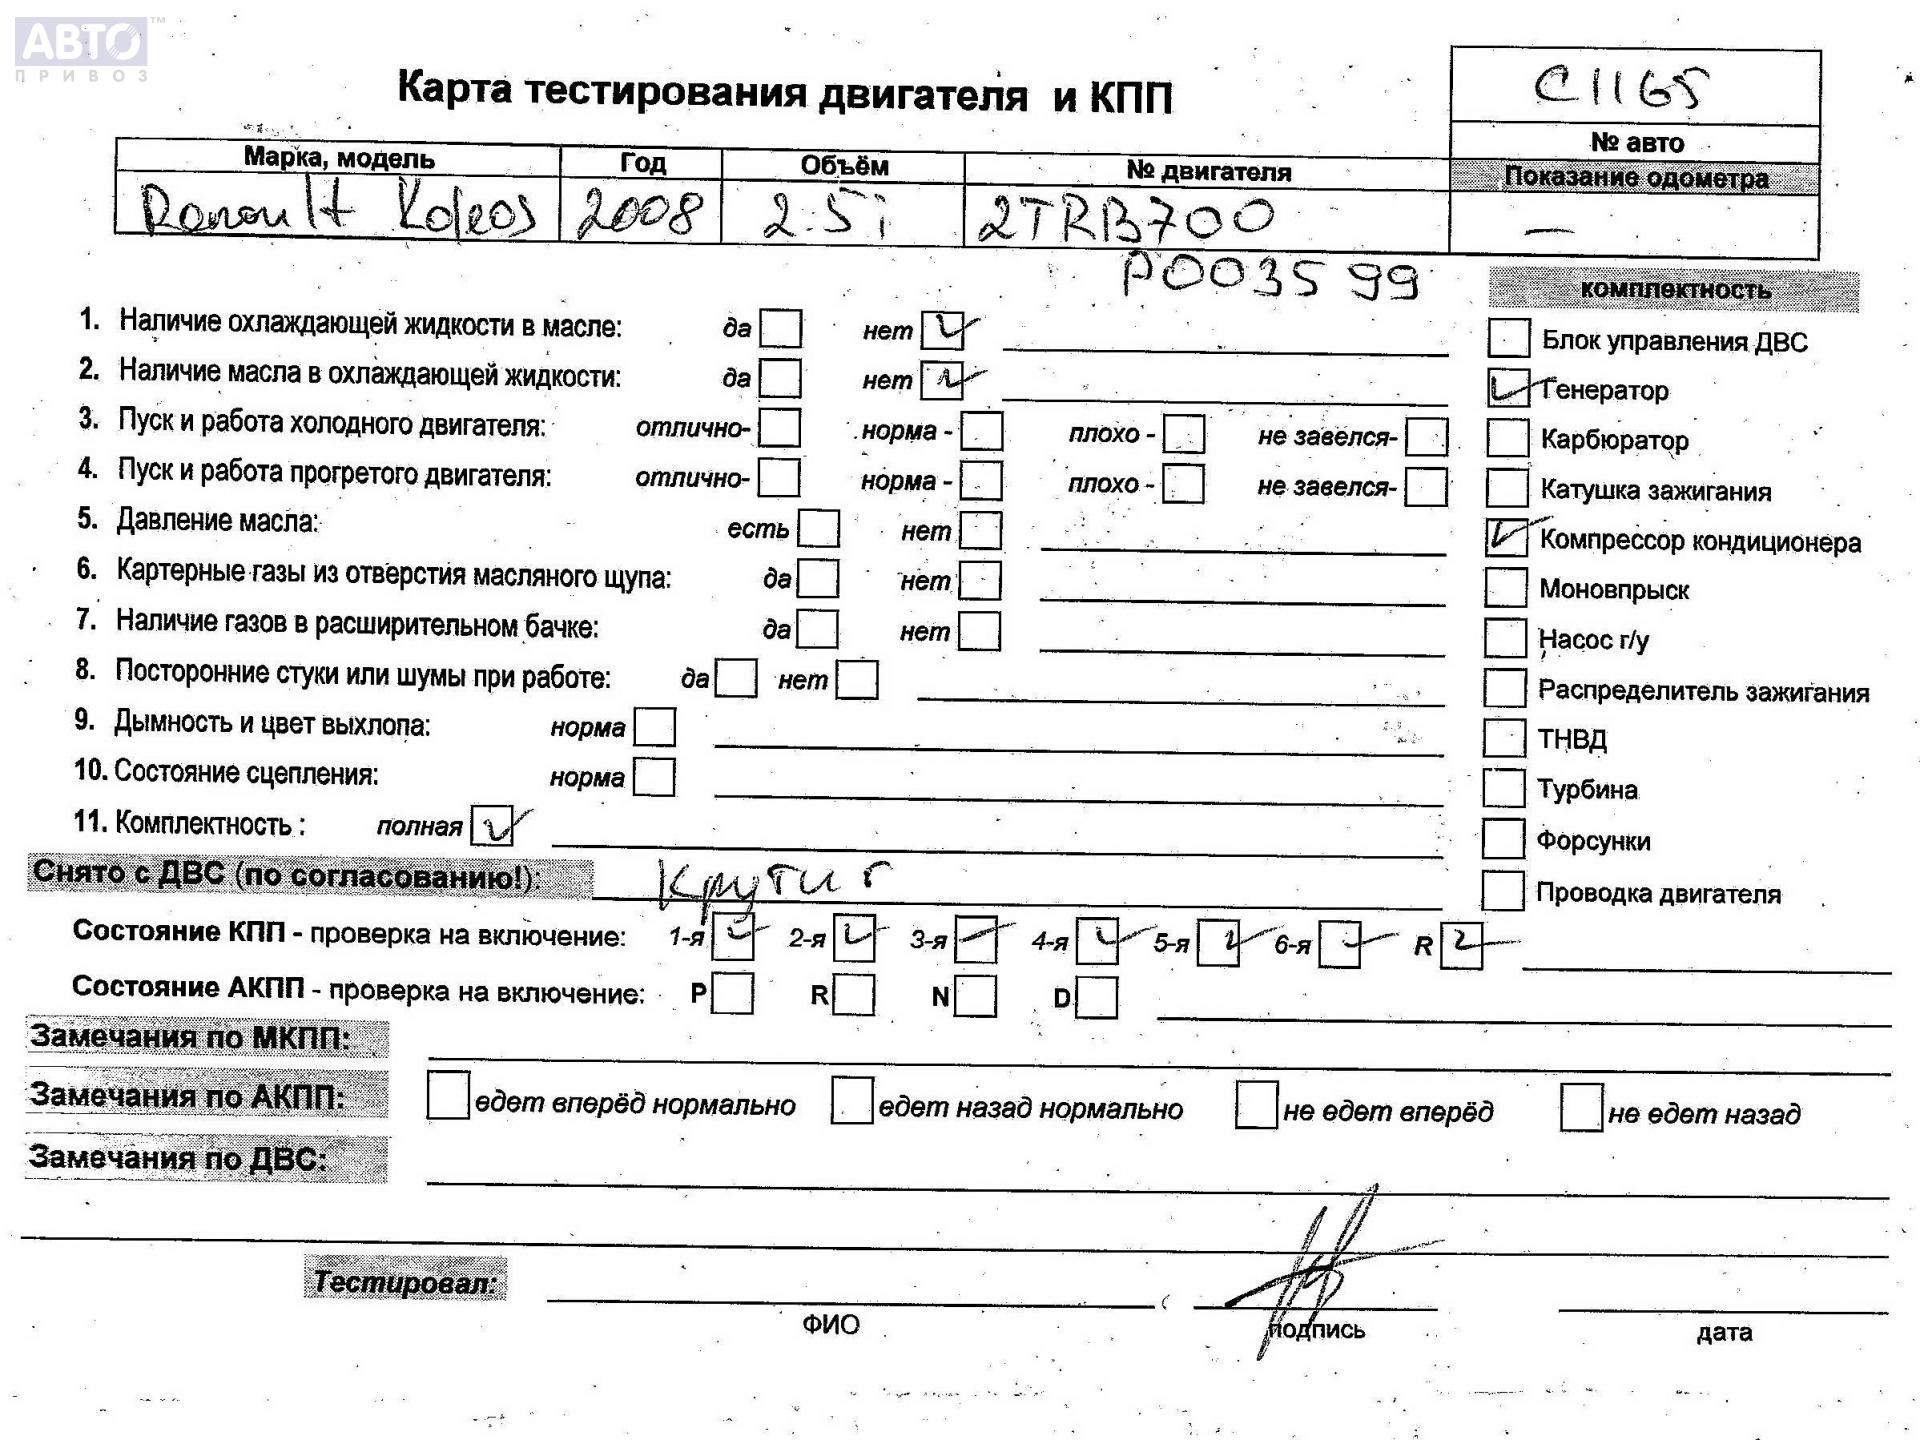 АВТО™
ПРИВОЗ
Карта тестирования двигателя и КПП
C1165
№ авто
Марка, модель Год Объём № двигателя Показание одометра
Renault Koleos 2008 2.5i 2TRB700 —
P003599
комплектность
1. Наличие охлаждающей жидкости в масле: да нет
2. Наличие масла в охлаждающей жидкости: да нет
3. Пуск и работа холодного двигателя: отлично- норма - плохо - не завелся-
4. Пуск и работа прогретого двигателя: отлично- норма - плохо - не завелся-
5. Давление масла: есть нет
6. Картерные газы из отверстия масляного щупа: да нет
7. Наличие газов в расширительном бачке: да нет
8. Посторонние стуки или шумы при работе: да нет
9. Дымность и цвет выхлопа: норма
10. Состояние сцепления: норма
11. Комплектность : полная
Блок управления ДВС
Генератор
Карбюратор
Катушка зажигания
Компрессор кондиционера
Моновпрыск
Насос г/у
Распределитель зажигания
ТНВД
Турбина
Форсунки
Проводка двигателя
Снято с ДВС (по согласованию!): Крутит
Состояние КПП - проверка на включение: 1-я 2-я 3-я 4-я 5-я 6-я R
Состояние АКПП - проверка на включение: P R N D
Замечания по МКПП:
Замечания по АКПП: едет вперёд нормально едет назад нормально не едет вперёд не едет назад
Замечания по ДВС:
Тестировал:
ФИО подпись дата